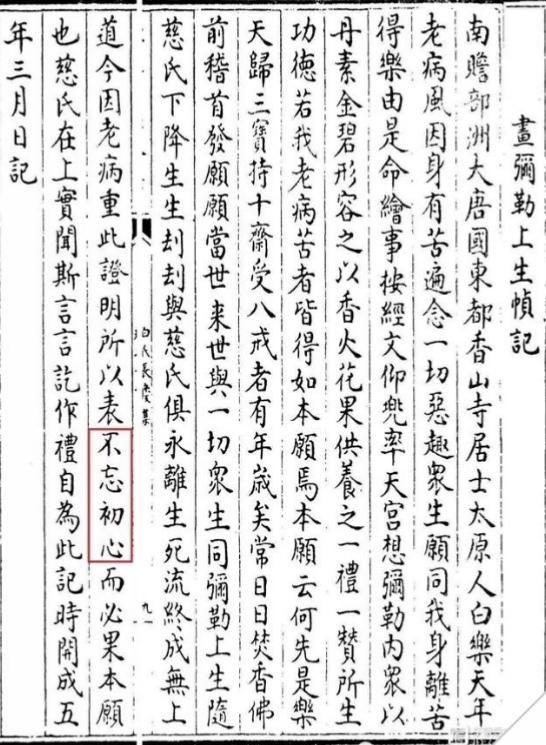 畫彌勒上生幀記
南贍部洲大唐國東都香山寺居士太原人白樂天年
老病風因身有苦遍念一切惡趣衆生願同我身離苦
得樂由是命繪事按經文仰兜率天宮想彌勒內衆以
丹素金碧形容之以香火花果供養之一禮一贊所生
功德若我老病苦者皆得如本願焉本願云何先是樂
天歸三寶持十齋受八戒者有年歲矣常日日焚香佛
前稽首發願願當世来世與一切衆生同彌勒上生隨
慈氏下降生生刦刦與慈氏俱永離生死流終成無上
白氏長慶集
道今因老病重此證明所以表不忘初心而必果本願
也慈氏在上實聞斯言言訖作禮自為此記時開成五
年三月日記